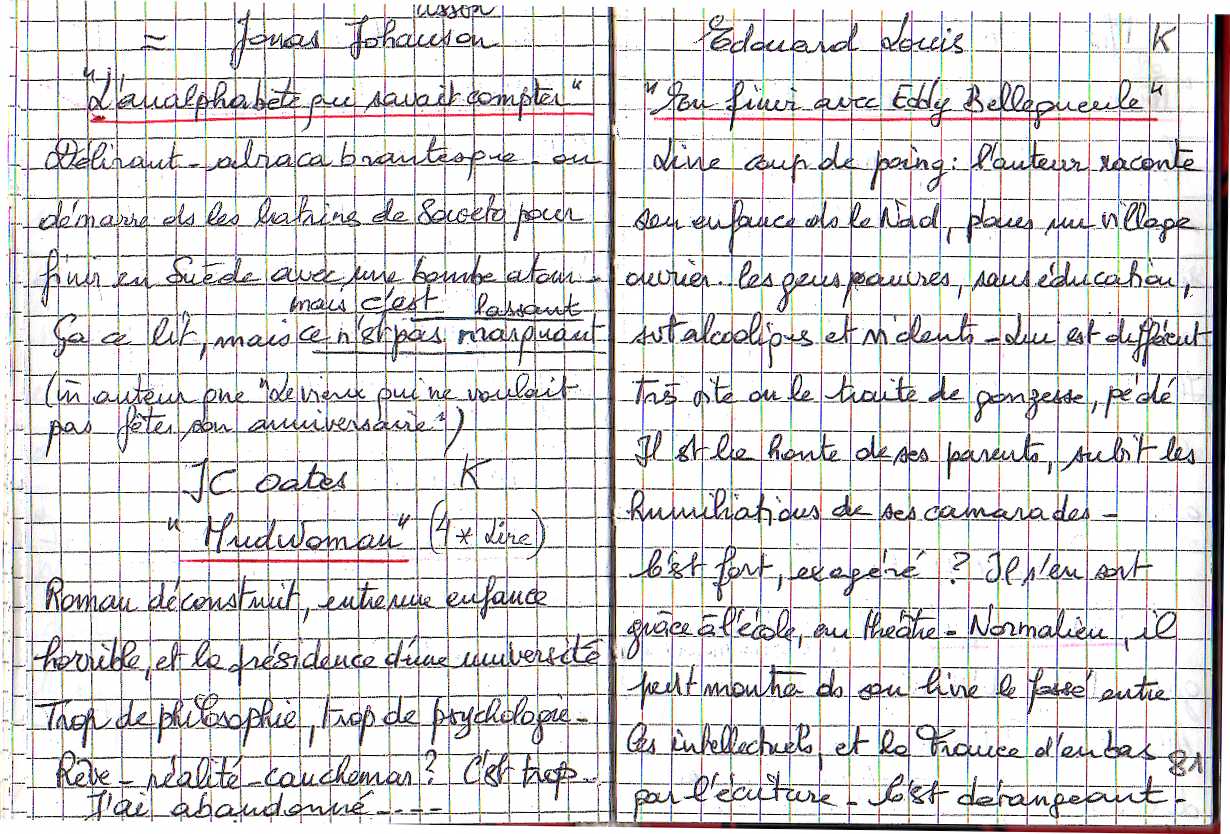 usson
= Jonas Johanson
"L'analphabète qui savait compter"
Délirant - abracabrantesque - on
démarre ds les latrines de Soweto pour
finir en Suède avec une bombe atom -
mais c'est lassant
Ça ce lit, mais ce n'est pas marquant
(m̄ auteur que "Le vieux qui ne voulait
pas fêter son anniversaire")
JC Oates K
"Mudwoman" (4 * Lire)
Roman déconstruit, entre une enfance
horrible, et la présidence d'une université
Trop de philosophie, trop de psychologie -
Rêve - réalité - cauchemar? C'est trop -
J'ai abandonné ----
Edouard Louis K
"En finir avec Eddy Bellegueule"
Livre coup de poing: l'auteur raconte
son enfance ds le Nord, dans un village
ouvrier.. les gens pauvres, sans éducation,
st alcooliques et violents - Lui est différent
Très vite on le traite de gonzesse, pédé
Il est la honte de ses parents, subit les
humiliations de ses camarades -
C'est fort, exagéré ? Il s'en sort
grâce à l'école, au théâtre - Normalien, il
peut montrer ds son livre le fossé entre
les intellectuels, et la France d'en bas
par l'écriture - C'est dérangeant -
81